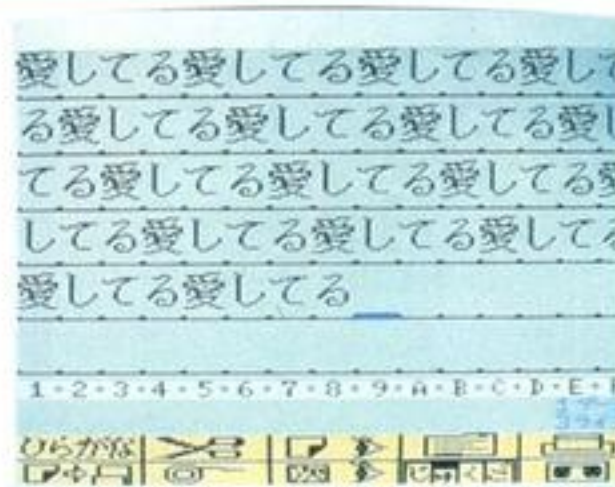 愛してる愛してる愛してる愛して
る愛してる愛してる愛してる愛し
てる愛してる愛してる愛してる愛
してる愛してる愛してる愛してる
愛してる愛してる
1・2・3・4・5・6・7・8・9・A・B・C・D・E・
ひらがな
じゅくご